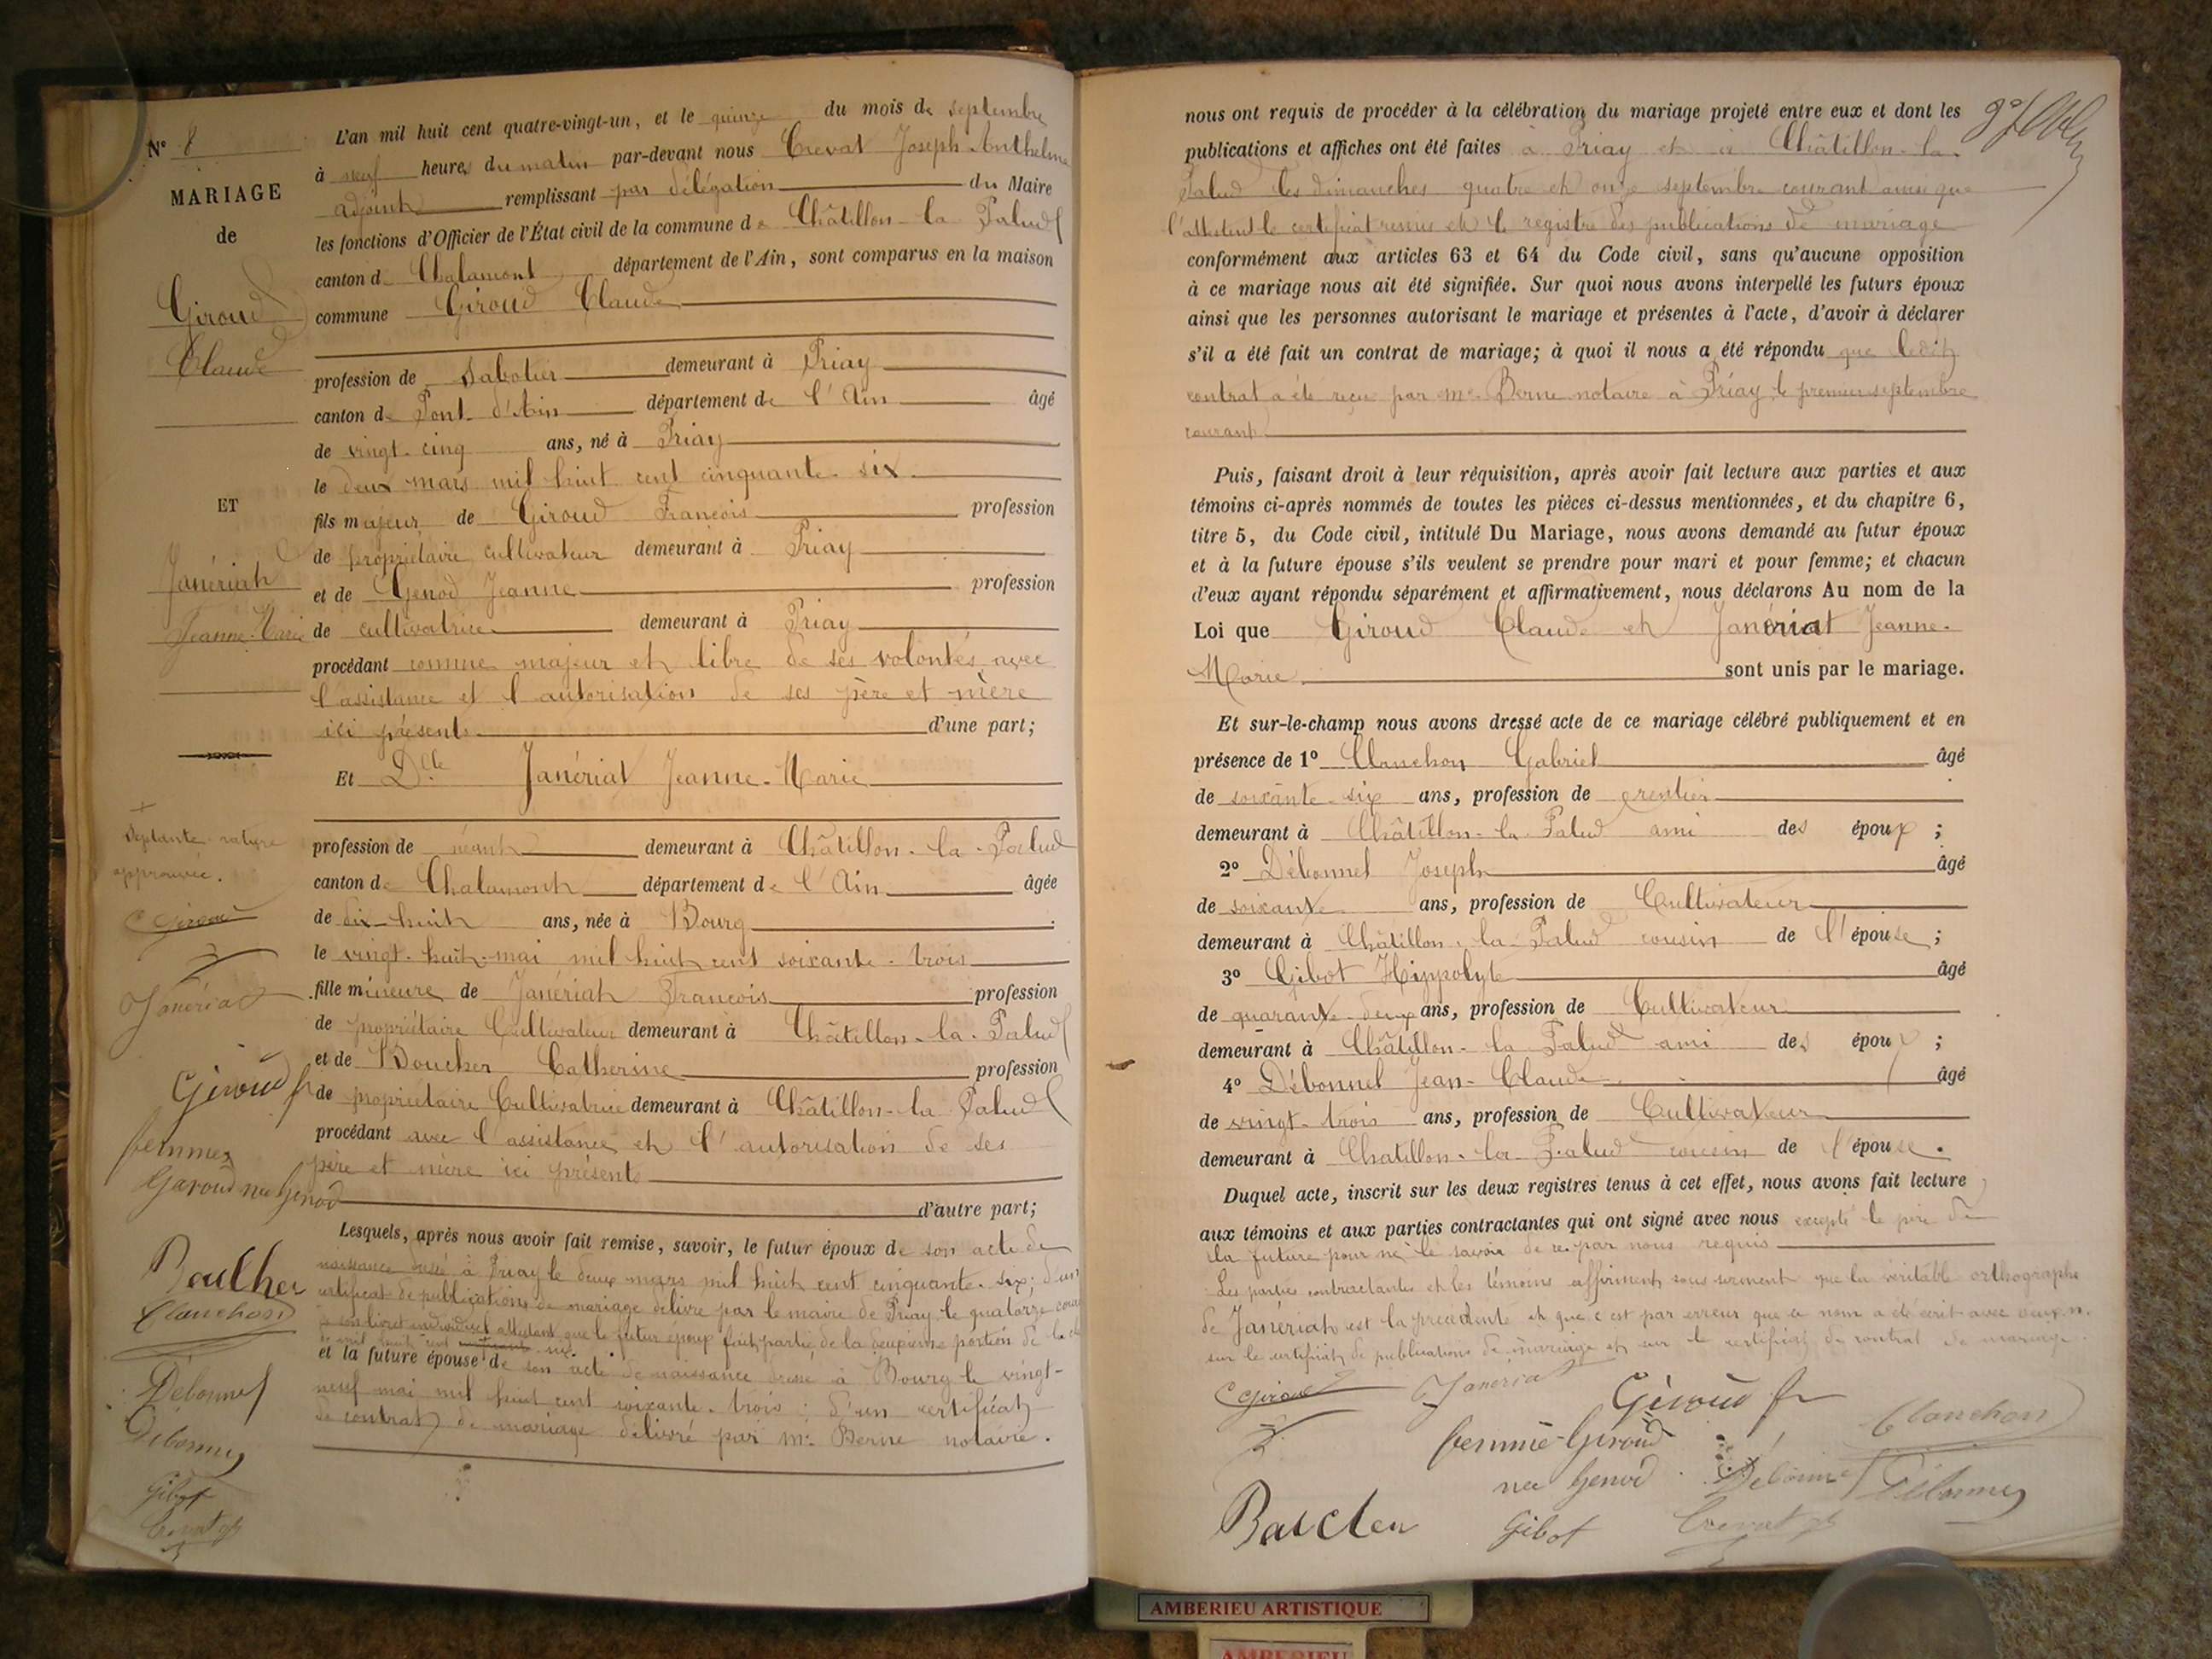 N° 8
MARIAGE
de
Giroud
Claude
ET
Janériat
Jeanne-Marie
L'an mil huit cent quatre-vingt-un, et le quinze du mois de septembre
à neuf heures du matin par-devant nous Crevat Joseph Anthelme
adjoint remplissant par délégation du Maire
les fonctions d'Officier de l'État civil de la commune de Châtillon-la-Palud
canton de Chalamont département de l'Ain, sont comparus en la maison
commune Giroud Claude
profession de Sabotier demeurant à Priay
canton de Pont-d'Ain département de l'Ain âgé
de vingt-cinq ans, né à Priay
le deux mars mil huit cent cinquante-six
fils majeur de Giroud François profession
de propriétaire cultivateur demeurant à Priay
et de Genod Jeanne profession
de cultivatrice demeurant à Priay
procédant comme majeur et libre de ses volontés avec
l'assistance et l'autorisation de ses père et mère
ici présents d'une part;
Et Dlle Janériat Jeanne-Marie
profession de néant demeurant à Châtillon-la-Palud
canton de Chalamont département de l'Ain âgée
de dix-huit ans, née à Bourg
le vingt-huit mai mil huit cent soixante-trois
fille mineure de Janériat François profession
de propriétaire Cultivateur demeurant à Châtillon-la-Palud
et de Boucher Catherine profession
de propriétaire Cultivatrice demeurant à Châtillon-la-Palud
procédant avec l'assistance et l'autorisation de ses
père et mère ici présents
d'autre part;
Lesquels, après nous avoir fait remise, savoir, le futur époux de son acte de
naissance dressé à Priay le deux mars mil huit cent cinquante-six; d'un
certificat de publications de mariage délivré par le maire de Priay le quatorze
de son livret individuel attestant que le futur époux fait partie de la deuxième portion de la
et la future épouse de son acte de naissance dressé à Bourg le vingt-
neuf mai mil huit cent soixante-trois; d'un certificat
de contrat de mariage délivré par Me Berne notaire.
approuvée.
C Giroud
Janériat
Giroud fr
femme
Giroud née Genod
Clanchon
Débonnel
Débonnel
Gibot
Crevat
nous ont requis de procéder à la célébration du mariage projeté entre eux et dont les
publications et affiches ont été faites à Priay et à Châtillon-la-
Palud les dimanches quatre et onze septembre courant ainsi que
l'attestent le certificat remis et le registre des publications de mariage
conformément aux articles 63 et 64 du Code civil, sans qu'aucune opposition
à ce mariage nous ait été signifiée. Sur quoi nous avons interpellé les futurs époux
ainsi que les personnes autorisant le mariage et présentes à l'acte, d'avoir à déclarer
s'il a été fait un contrat de mariage; à quoi il nous a été répondu que ledit
contrat a été reçu par me Berne notaire à Priay le premier septembre
courant
Puis, faisant droit à leur réquisition, après avoir fait lecture aux parties et aux
témoins ci-après nommés de toutes les pièces ci-dessus mentionnées, et du chapitre 6,
titre 5, du Code civil, intitulé Du Mariage, nous avons demandé au futur époux
et à la future épouse s'ils veulent se prendre pour mari et pour femme; et chacun
d'eux ayant répondu séparément et affirmativement, nous déclarons Au nom de la
Loi que Giroud Claude et Janériat Jeanne-
Marie sont unis par le mariage.
Et sur-le-champ nous avons dressé acte de ce mariage célébré publiquement et en
présence de 1° Clanchon Gabriel âgé
de soixante-six ans, profession de rentier
demeurant à Châtillon-la-Palud ami des époux;
2° Débonnel Joseph âgé
de soixante ans, profession de Cultivateur
demeurant à Châtillon-la-Palud cousin de l'épouse;
3° Gibot Hippolyte âgé
de quarante-deux ans, profession de Cultivateur
demeurant à Châtillon-la-Palud ami des époux;
4° Débonnel Jean-Claude âgé
de vingt-trois ans, profession de Cultivateur
demeurant à Chatillon-la-Palud cousin de l'épouse.
Duquel acte, inscrit sur les deux registres tenus à cet effet, nous avons fait lecture
aux témoins et aux parties contractantes qui ont signé avec nous excepté le père de
la future pour ne le savoir de ce par nous requis
Les parties contractantes et les témoins affirment sous serment que la véritable orthographe
de Janériat est la précédente et que c'est par erreur que ce nom a été écrit avec deux n
sur le certificat de publications de mariage et sur le certificat de contrat de mariage.
C Giroud
Janeriat
Giroud fr
Clanchon
femme Giroud
née Genod
Débonnel
Débonnel
Gibot
Crevat
AMBERIEU ARTISTIQUE
AMBERIEU